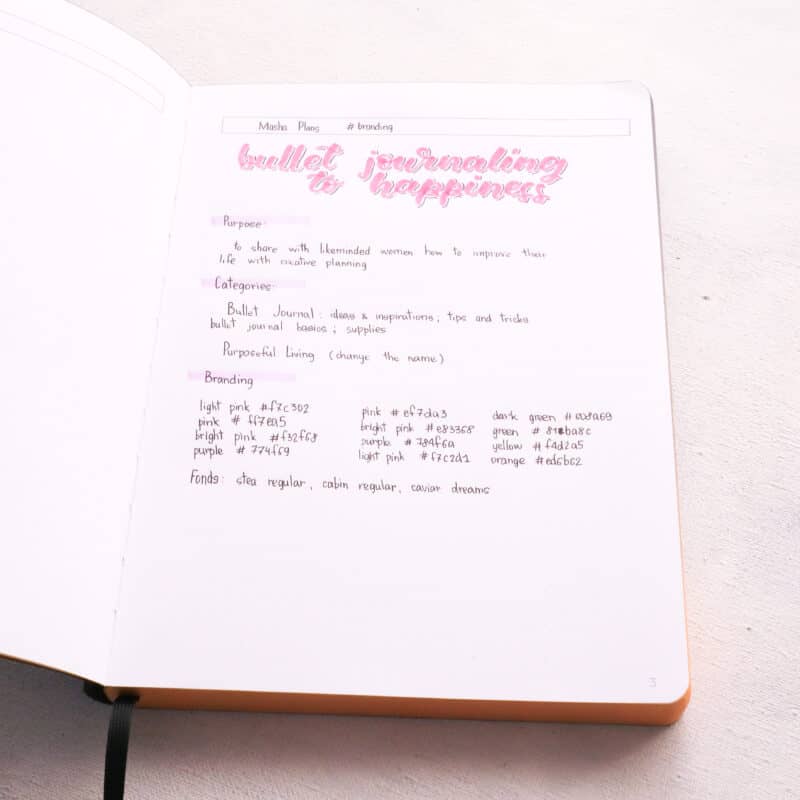 Masha Plans # branding
bullet journaling
to happiness
Purpose:
to share with likeminded women how to improve their
life with creative planning
Categories:
Bullet Journal: ideas & inspirations; tips and tricks
bullet journal basics; supplies
Purposeful Living (change the name)
Branding
light pink #f7c302
pink # ff7ea5
bright pink #f32f68
purple # 774f69
pink # ef7da3
bright pink # e83368
purple # 784f6a
light pink #f7c2d1
dark green
green
yellow # f4d2a5
orange #ed6b62
Fonds: stea regular, cabin regular, caviar dreams
3